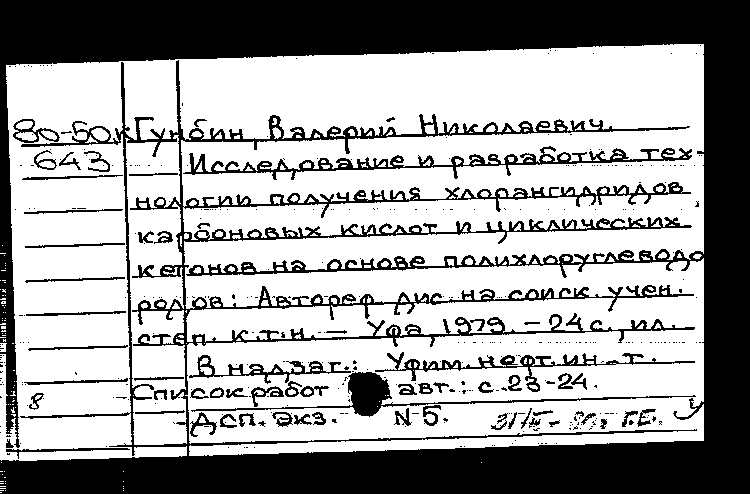 80-50к Гунбин, Валерий Николаевич.
643 Исследование и разработка тех-
нологии получения хлорангидридов
карбоновых кислот и циклических
кетонов на основе полихлоруглеводо
родов: Автореф. дис. на соиск. учен.
степ. к.т.н. – Уфа, 1979. – 24 с., ил.
В надзаг.: Уфим. нефт. ин-т.
Список работ авт.: с. 23-24.
8
ДСП. Экз. N 5.